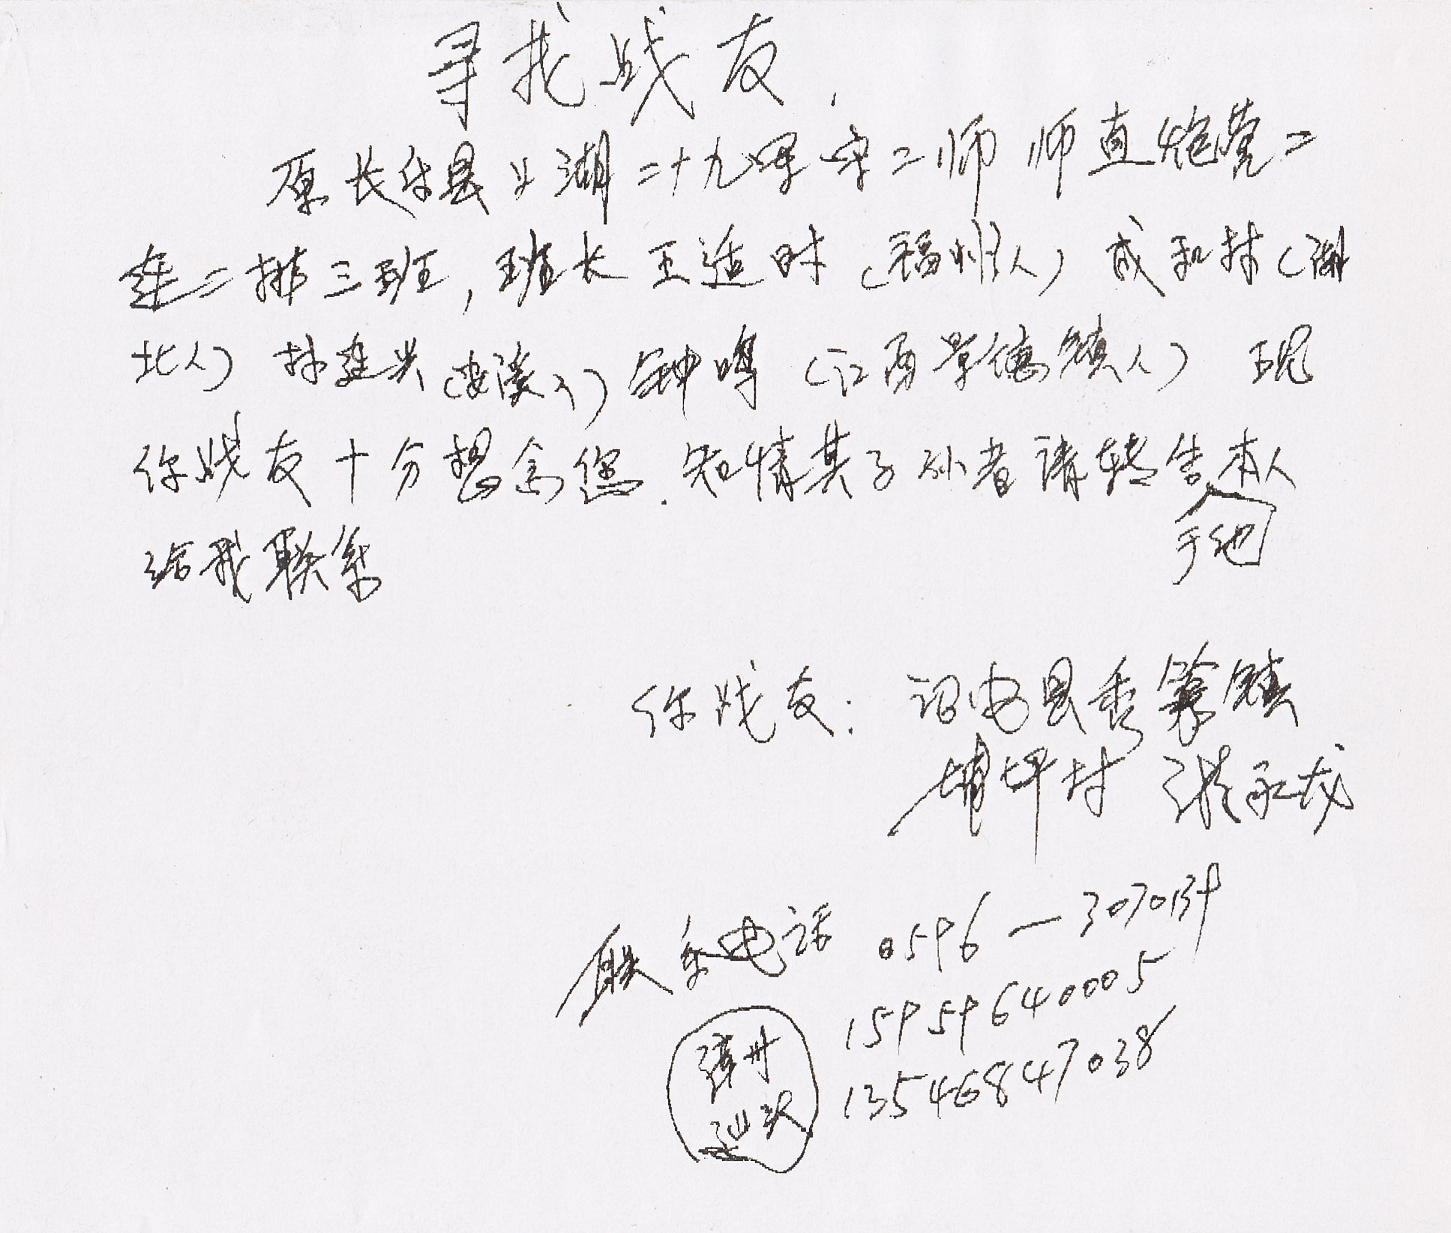 寻找战友.
原长乐县上湖二十九军守二师 师直炮营二
连二排三班, 班长 王适时 (福州人) 成和林 (湖
北人) 林连兴 (安溪人) 钟鸣 (江西景德镇人) 现
你战友十分想念您. 知情其子孙者请转告本人
于他
给我联系
你战友: 诏安县秀篆镇
埔坪村 永龙
联系电话 0596—3070139
15959640005
漳州
13546847038
汕头